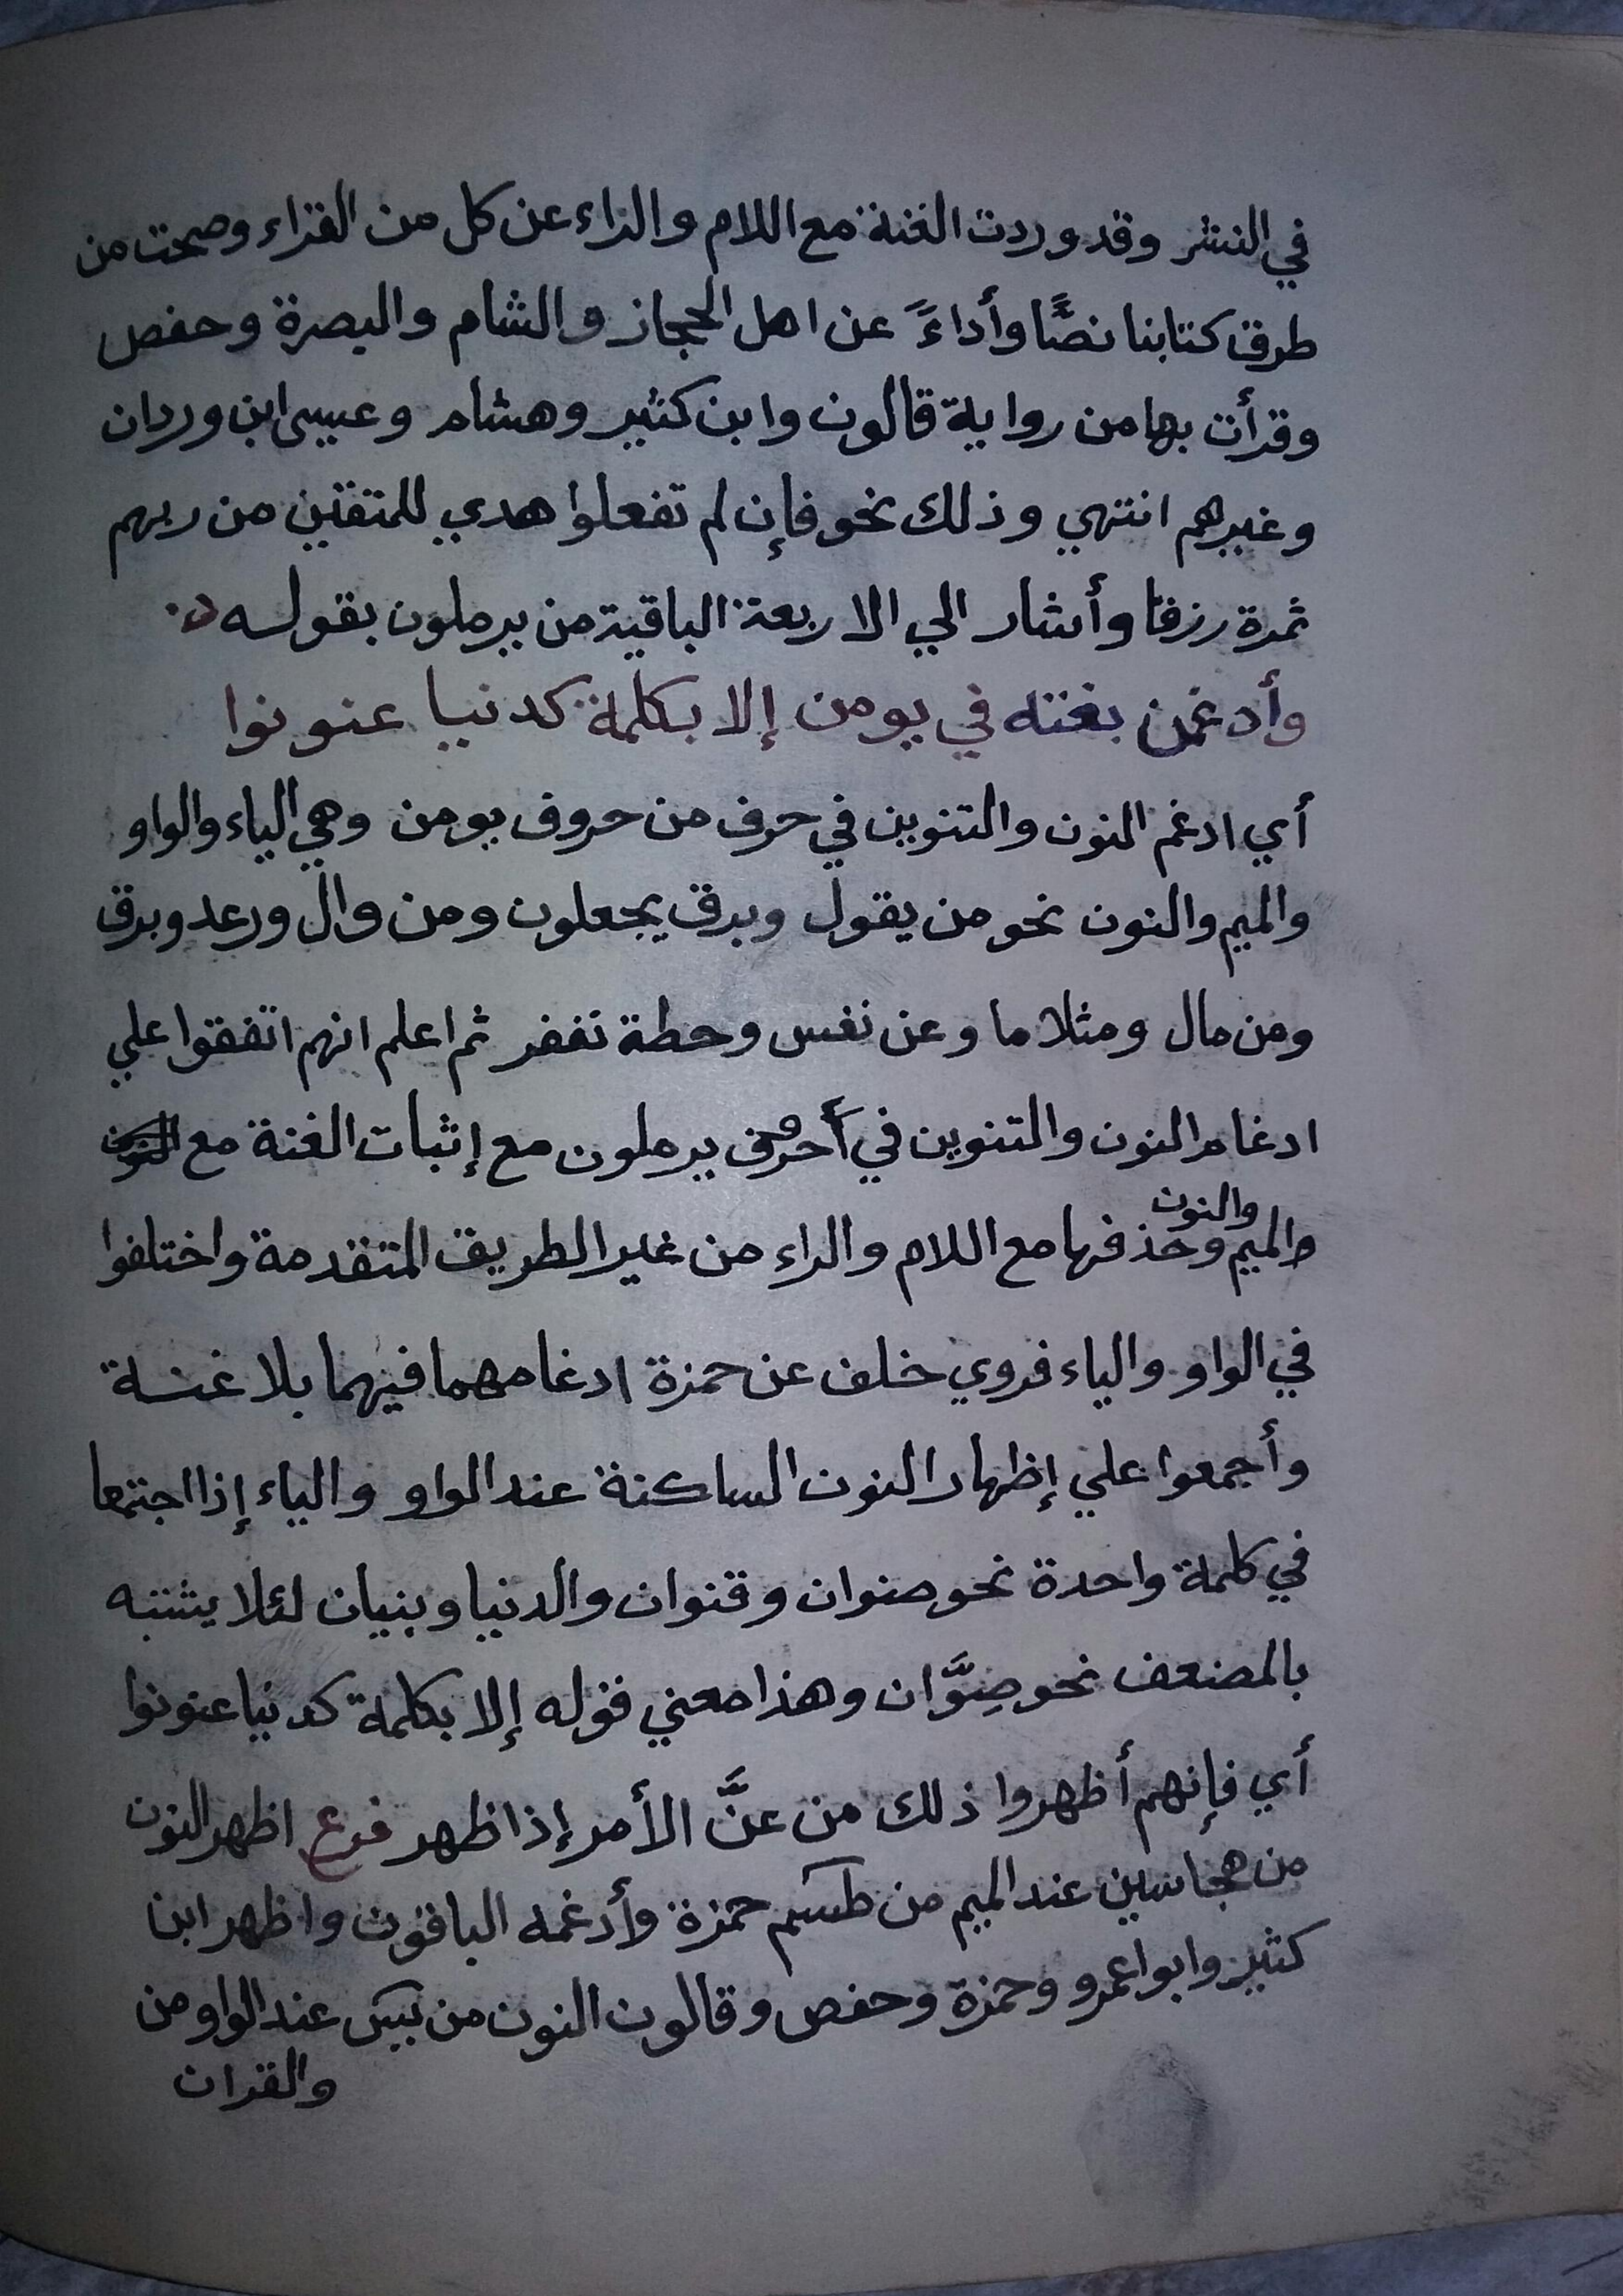 في النشر وقد وردت الغنة مع اللام والراء عن كل من القراء وصحت من
طرق كتابنا نصًّا وأداءً عن اهل الحجاز والشام والبصرة وحفص
وقرأت بها من رواية قالون وابن كثير وهشام وعيسى ابن وردان
وغيرهم انتهي وذلك نحو فإن لم تفعلوا هدي للمتقين من ربهم
ثمرة رزقا وأشار الي الاربعة الباقية من يرملون بقوله
وأدغمن بغنه في يومن إلا بكلمة كدنيا عنونوا
أي ادغم النون والتنوين في حرف من حروف يومن وهي الياء والواو
والميم والنون نحو من يقول وبرق يجعلون ومن وال ورعد وبرق
ومن مال ومثلا ما وعن نفس وحطة نغفر ثم اعلم انهم اتفقوا علي
ادغام النون والتنوين في أحرف يرملون مع إثبات الغنة مع
والنون
الميم وحذفها مع اللام والراء من غير الطريق المتقدمة واختلفوا
في الواو والياء فروي خلف عن حمزة ادغامهما فيهما بلا غنة
وأجمعوا علي إظهار النون الساكنة عند الواو والياء إذا اجتمعا
في كلمة واحدة نحو صنوان وقنوان والدنيا وبنيان لئلا يشتبه
بالمضعف نحو صِوَّان وهذا معني قوله إلا بكلمة كدنيا عنونوا
أي فإنهم أظهروا ذلك من عنَّ الأمر إذا ظهر فرع اظهر النون
من هجا سين عند الميم من طسم حمزة وأدغمه الباقون واظهر ابن
كثير وابوا عمرو وحمزة وحفص وقالون النون من يس عند الواو من
والقران